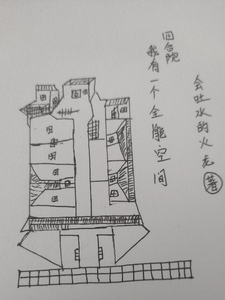 旧合院
我有一个全能空间
会吐水的火龙
著